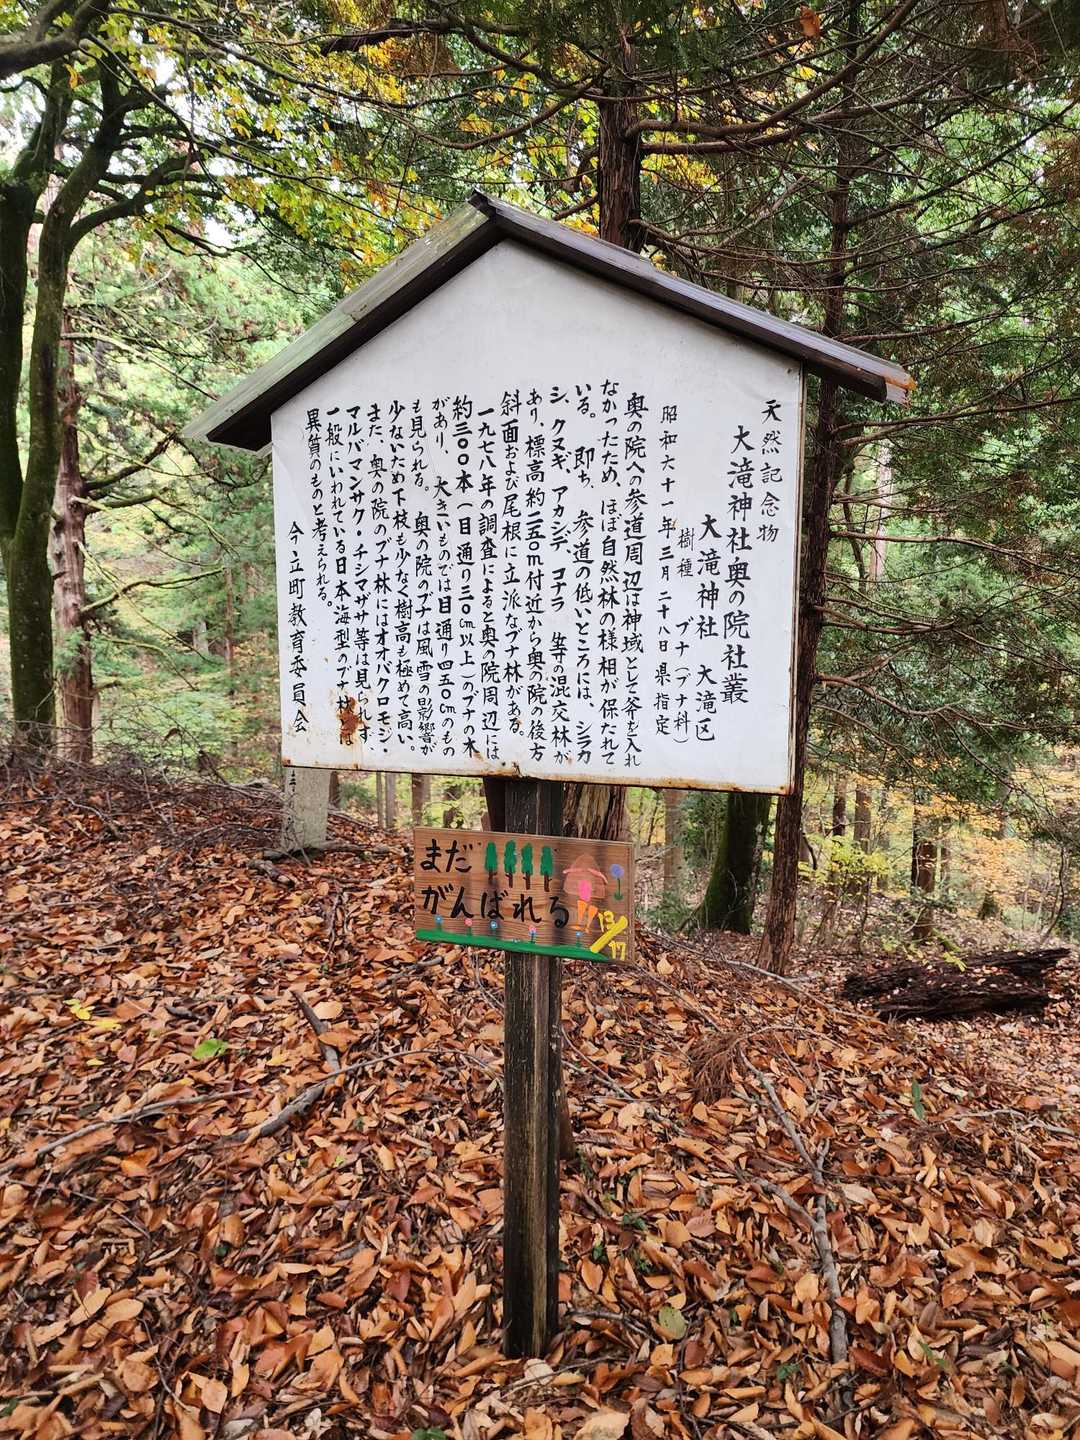 天然記念物
大滝神社奥の院社叢
大滝神社 大滝区
樹種 ブナ(ブナ科)
昭和六十一年三月二十八日県指定
奥の院への参道周辺は神域として斧を入れ
なかったため、ほぼ自然林の様相が保たれて
いる。即ち、参道の低いところには、シラカ
シ、クヌギ、アカシデ、コナラ 等の混交林が
あり、標高約二五〇m付近から奥の院の後方
斜面および尾根に立派なブナ林がある。
一九七八年の調査によると奥の院周辺には
約三〇〇本(目通り三〇cm以上)のブナの木
があり、大きいものでは目通り四五〇cmのもの
も見られる。奥の院のブナは風雪の影響が
少ないため下枝も少なく樹高も極めて高い。
また、奥の院のブナ林にはオオバクロモジ・
マルバマンサク・チシマザサ等は見られず、
一般にいわれている日本海型のブナ林とは
異質のものと考えられる。
今立町教育委員会
まだ
がんばれる!!
13/17